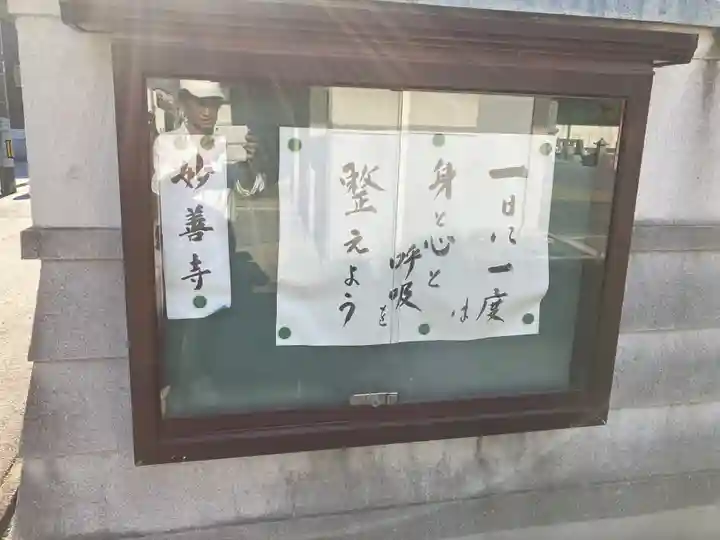 一日に一度は
身と心と
呼吸を
整えよう
妙善寺